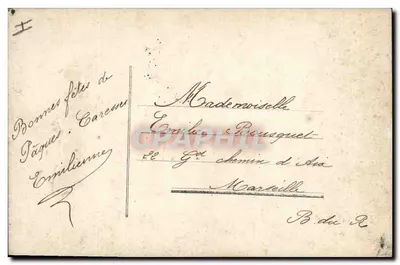 Bonnes fêtes de
Pâques. Caresses
Emilienne
Mademoiselle
Bousquet
22 Gd chemin d'Aix
Marseille
B. du R